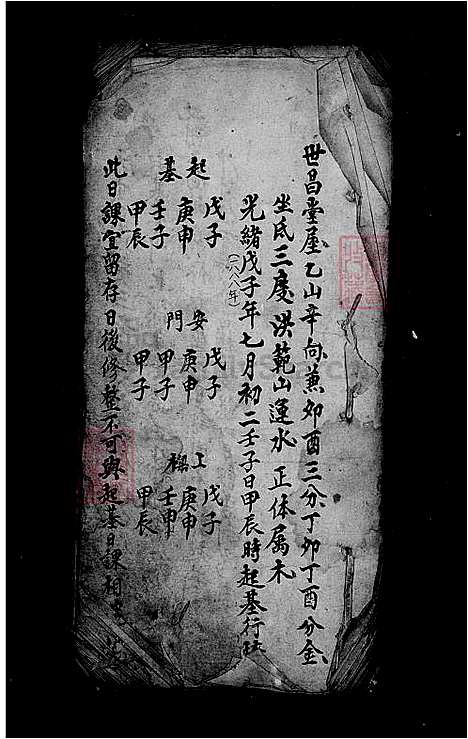 世昌堂屋乙山辛向兼卯酉三分丁卯丁酉分金
坐氐三度洪範山運水正体属木
光緒戊子年七月初二壬子日甲辰時起基行
(一八八八年)
起基
戊子
庚申
壬子
甲辰
安門
戊子
庚申
甲子
甲子
上樑
戊子
庚申
壬申
甲辰
此日課宜留存日後修整不可與起基日課相